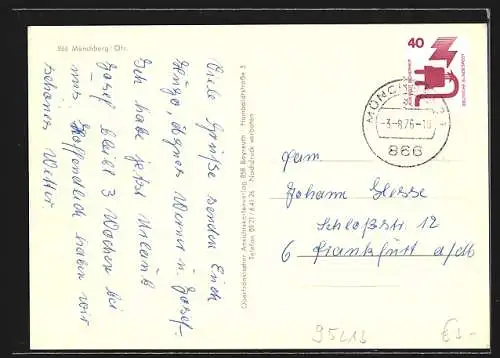 866 Münchberg/Ofr.
Viele Grüße senden Euch
Hugo, Agnes Werner u. Josef.
Ich habe jetzt Urlaub
Josef bleibt 3 Wochen bei
uns. Hoffentlich haben wir
schönes Wetter
Oberfränkischer Ansichtskartenverlag 858 Bayreuth Humboldtstraße 3
Telefon 0921/6 41 26 Nachdruck verboten
40
DEUTSCHE BUNDESPOST
MÜNCHBERG 1
-3.-8.76-18
866
Fam.
Johann Glesse
Schloßstr. 12
6 Frankfurt a/M
95213